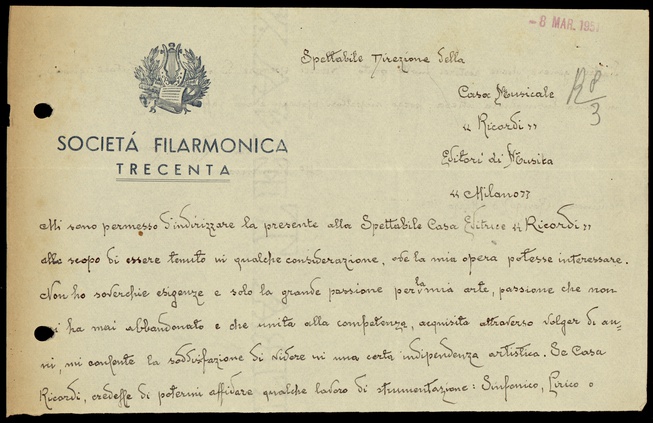 - 8 MAR. 1951
Spettabile Direzione della
Casa Musicale
"Ricordi"
Editori di Musica
"Milano"
R 8/3
SOCIETÁ FILARMONICA
TRECENTA
Mi sono permesso d'indirizzare la presente alla Spettabile Casa Editrice "Ricordi"
allo scopo di essere tenuto in qualche considerazione, ove la mia opera potesse interessare.
Non ho soverchie esigenze e solo la grande passione per la mia arte, passione che non
mi ha mai abbandonato e che unita alla competenza, acquisita attraverso volger di an-
ni, mi confonte la soddisfazione di vivere in una certa indipendenza artistica. Se Casa
Ricordi, credesse di potermi affidare qualche lavoro di strumentazione: Sinfonico, Lirico o